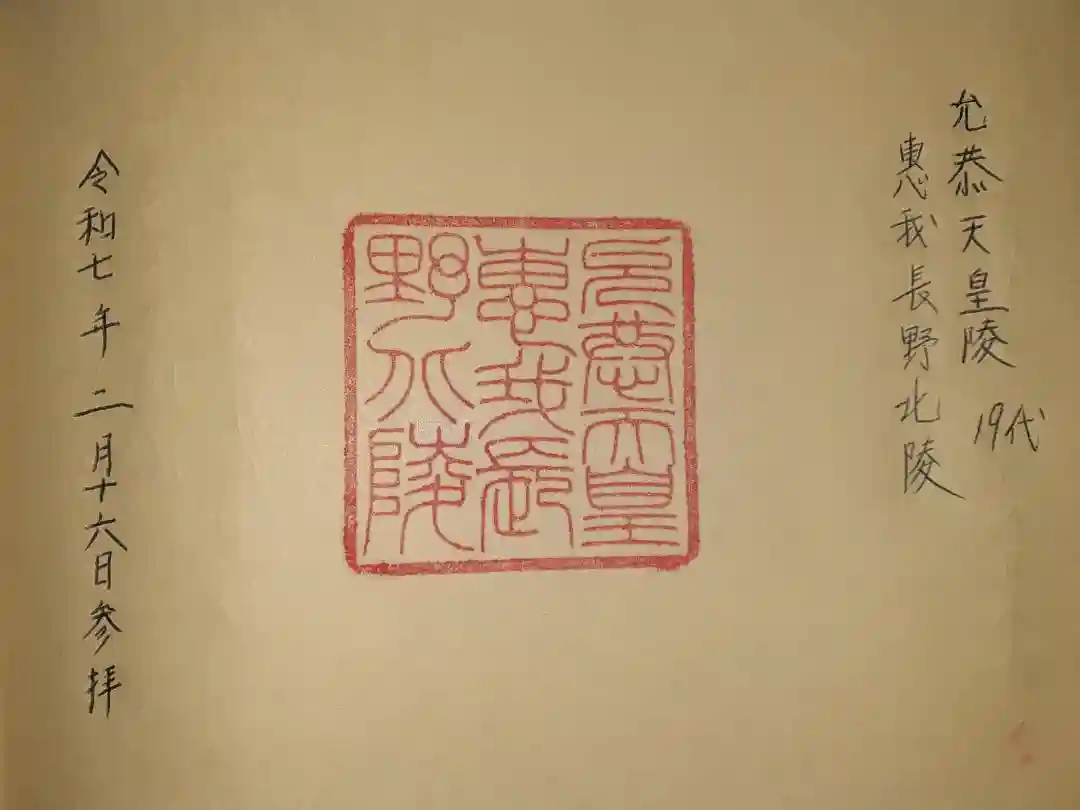 允恭天皇陵
19代
惠我長野北陵
允恭天皇
惠我長
野北陵
令和七年二月十六日参拝